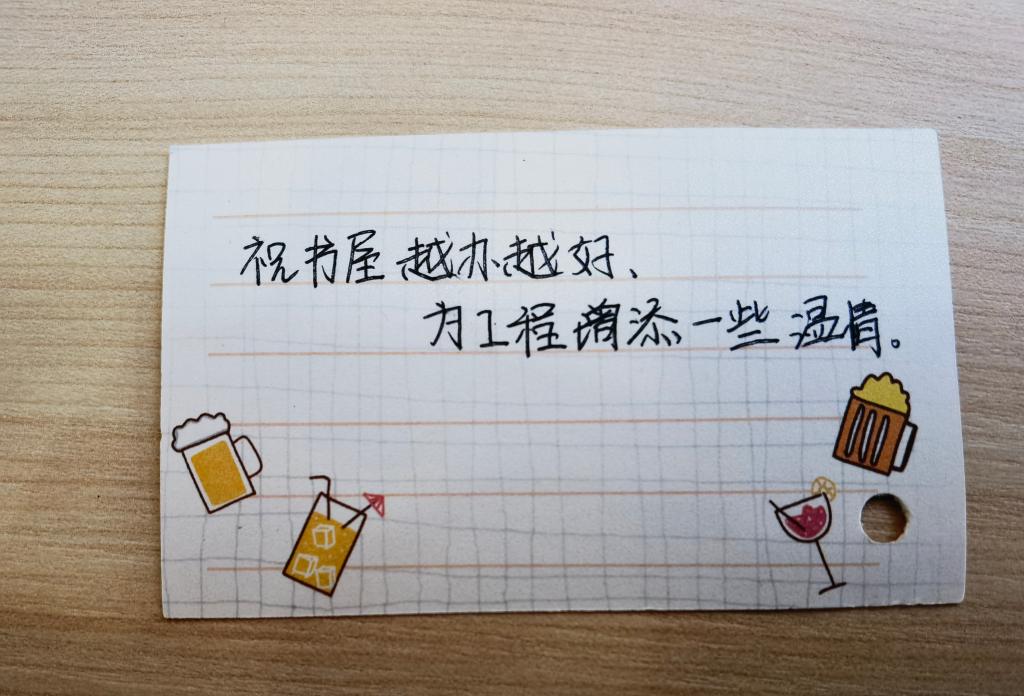 祝书屋越办越好、
为工程增添一些温情。